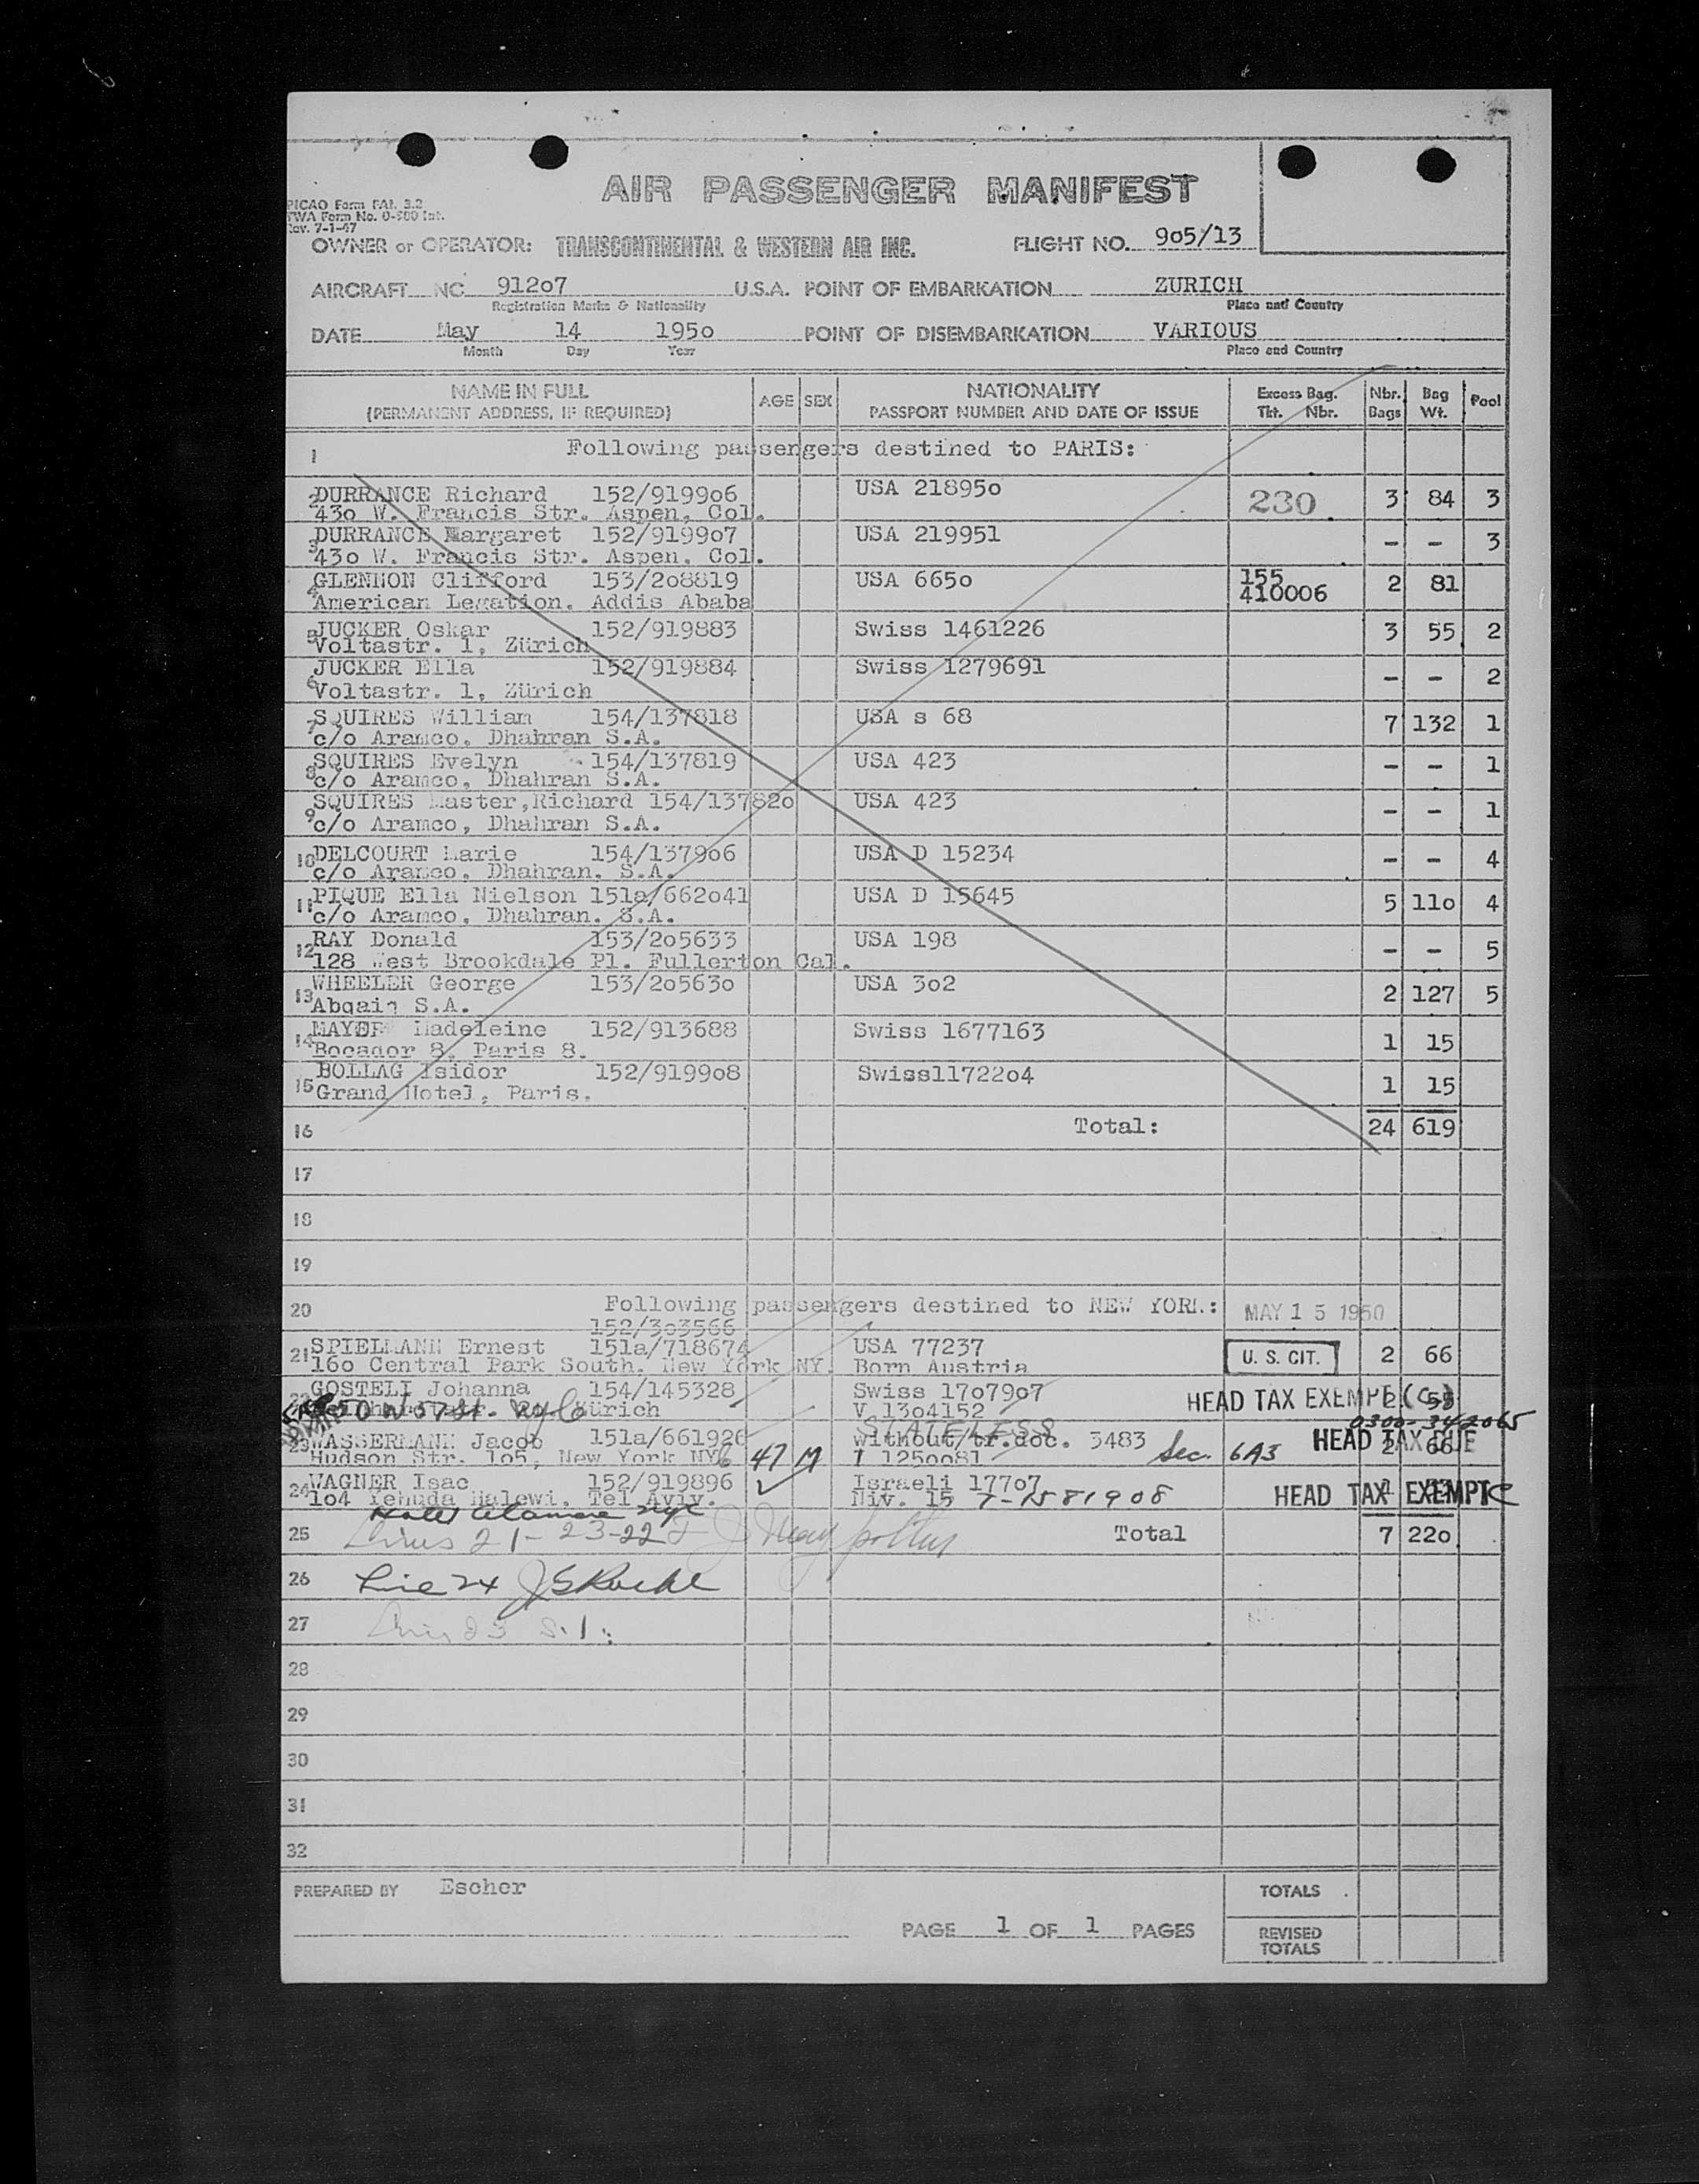 AIR PASSENGER MANIFEST
PICAO Form PAI. 3.2
TWA Form No. 0-500 Int.
Rev. 7-1-47
OWNER or OPERATOR: TRANSCONTINENTAL & WESTERN AIR INC. FLIGHT NO. 905/13
AIRCRAFT NC 91207 U.S.A. POINT OF EMBARKATION ZURICH
Registration Marks & Nationality Place and Country
DATE May 14 1950 POINT OF DISEMBARKATION VARIOUS
Month Day Year Place and Country
NAME IN FULL (PERMANENT ADDRESS, IF REQUIRED) AGE SEX NATIONALITY PASSPORT NUMBER AND DATE OF ISSUE Excess Bag. Tkt. Nbr. Nbr. Bags Bag Wt. Pool
1 Following passengers destined to PARIS:
2 DURRANCE Richard 152/919906 USA 218950 230 3 84 3
430 W. Francis Str. Aspen, Col.
3 DURRANCE Margaret 152/919907 USA 219951 - - 3
430 W. Francis Str. Aspen, Col.
4 GLENNON Clifford 153/208819 USA 6650 155 410006 2 81
American Legation, Addis Ababa
5 JUCKER Oskar 152/919883 Swiss 1461226 3 55 2
Voltastr. 1, Zürich
6 JUCKER Ella 152/919884 Swiss 1279691 - - 2
Voltastr. 1, Zürich
7 SQUIRES William 154/137818 USA s 68 7 132 1
c/o Aramco, Dhahran S.A.
8 SQUIRES Evelyn 154/137819 USA 423 - - 1
c/o Aramco, Dhahran S.A.
9 SQUIRES Master,Richard 154/137820 USA 423 - - 1
c/o Aramco, Dhahran S.A.
10 DELCOURT Marie 154/137906 USA D 15234 - - 4
c/o Aramco, Dhahran, S.A.
11 PIQUE Ella Nielson 151a/662041 USA D 15645 5 110 4
c/o Aramco, Dhahran, S.A.
12 RAY Donald 153/205633 USA 198 - - 5
128 West Brookdale Pl. Fullerton Cal.
13 WHEELER George 153/205630 USA 302 2 127 5
Abqaiq S.A.
14 MAYER Madeleine 152/913688 Swiss 1677163 1 15
Bocador 8, Paris 8.
15 BOLLAG Isidor 152/919908 Swiss1172204 1 15
Grand Hotel, Paris.
16 Total: 24 619
17
18
19
20 Following passengers destined to NEW YORK: MAY 15 1950
152/303566
21 SPIELMANN Ernest 151a/718674 USA 77237 U. S. CIT. 2 66
160 Central Park South, New York NY. Born Austria
22 GOSTELI Johanna 154/145328 Swiss 1707907 HEAD TAX EXEMPT (C) 2 55
Zürich V 1304152
STATELESS 0300-342065
23 WASSERMANN Jacob 151a/661926 47 M without/tr.doc. 3483 Sec. 6A3 HEAD TAX DUE 2 66
Hudson Str. 105, New York NY I 1250081
24 WAGNER Isac 152/919896 Israeli 17707 HEAD TAX EXEMPT C 1
104 Yehuda Halewi, Tel Aviv. Niv. 15 7-1581908
Hotel Alamac NYC
25 Lines 21-23-22 Total 7 220
26 Line 24
27 Line 23 S.I.
28
29
30
31
32
PREPARED BY Escher TOTALS
PAGE 1 OF 1 PAGES REVISED TOTALS